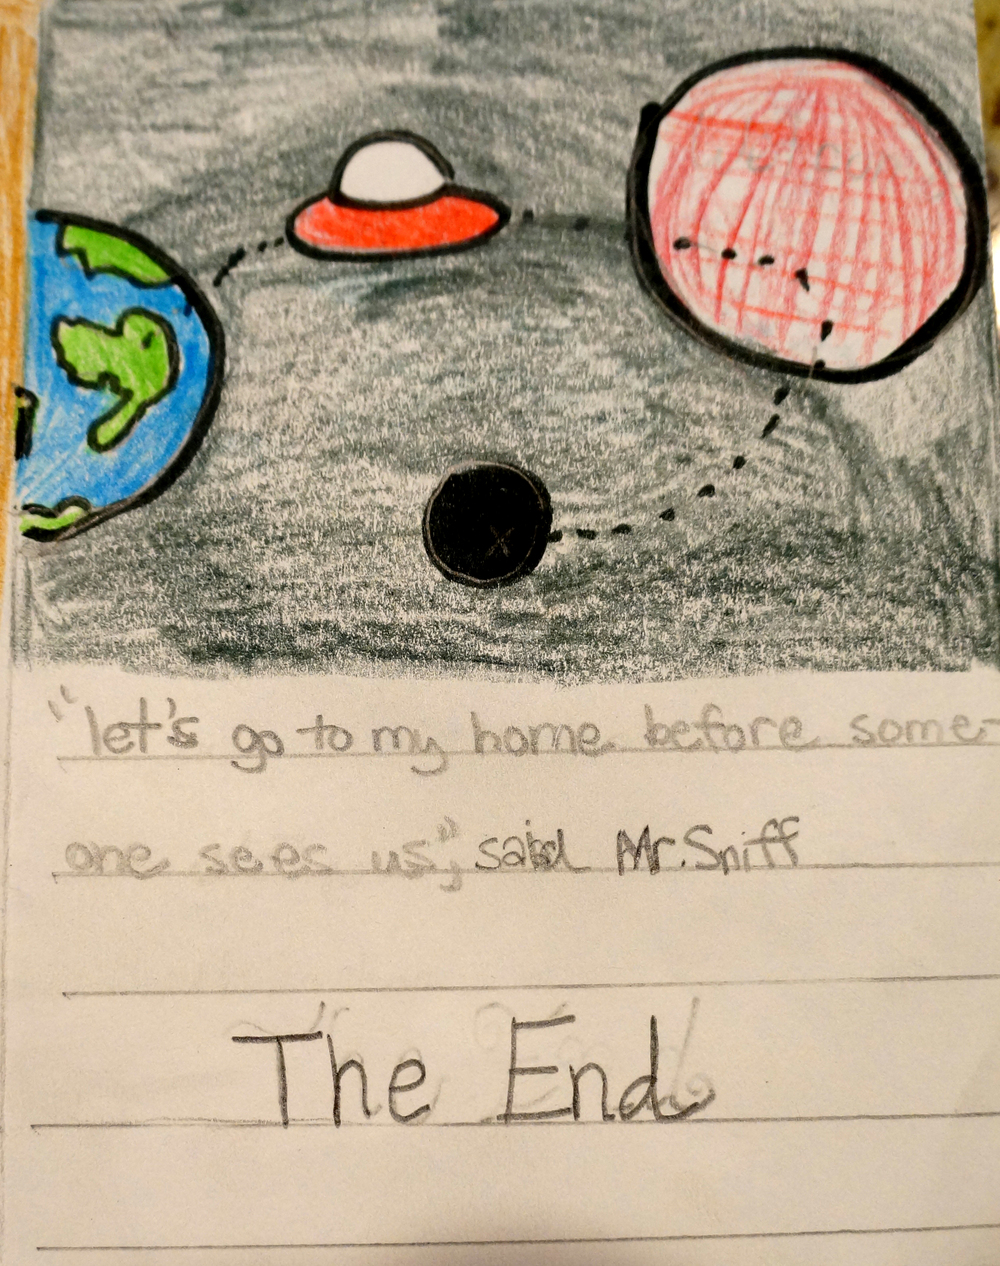 "let's go to my home before some-
one sees us", said Mr. Sniff
The End